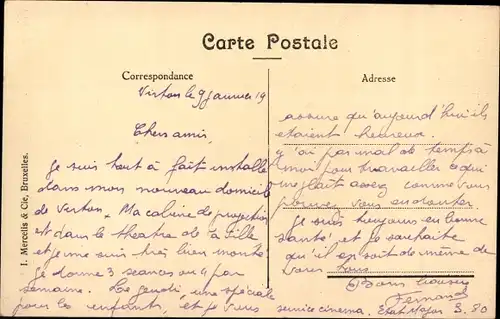 Carte Postale
Correspondance
Adresse
I. Mercelis & Cie, Bruxelles.
Virton le 9 Janvier 19
Chers amis
je suis tout à fait installé
dans mon nouveau domicile
de Virton. Ma cabine de projection
et dans le theatre de la ville
et je me suis très bien monté
je donne 3 séances ou 4 par
semaine. Le jeudi une spéciale
pour les enfants, et je vous
assure qu'aujourd'hui ils
etaient heureux.
y'ai pas mal de temps à
moi pour travailler ce qui
me plait assez comme vous
pouvez vous en douter.
je suis toujours en bonne
santé, et je souhaite
qu'il en soit de même de
vous tous
Bons baisers
Fernand
service cinema. Etat Major S. 80